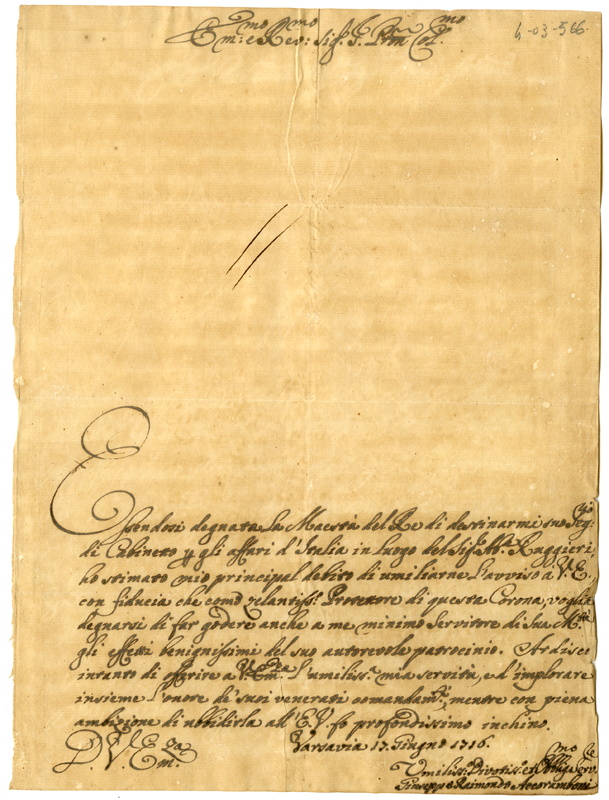 Em:mo e Rev:mo Sig.r S. Prõn Col.mo
h-03-566.
Essendosi degnata la Maestà del Re di destinarmi suo Seg:rio
di Cabineto p gli affari d'Italia in luogo del Sig.r Ab. Ruggieri,
ho stimato mio principal debito di umiliarne l'avviso a V.E.
con fiducia che come zelantiss.o Protettore di questa Corona, voglia
degnarsi di far godere anche a me minimo Servitore di Sua M.tà
gli effetti benignissimi del suo autorevole patrocinio. Ardisco
intanto di offerire a V. Em.za l'umiliss.a mia servitù, e d'implorare
insieme l'onore de suoi venerati comandam.ti, mentre con piena
ambizione di ubbidirla all'E.V. fo profondissimo inchino.
Varsavia 17. Giugno 1716.
D. V. Em.za
Umiliss.o Divotiss.o et Obbliga.mo Serv.re
Giuseppe Raimondo Accoramboni